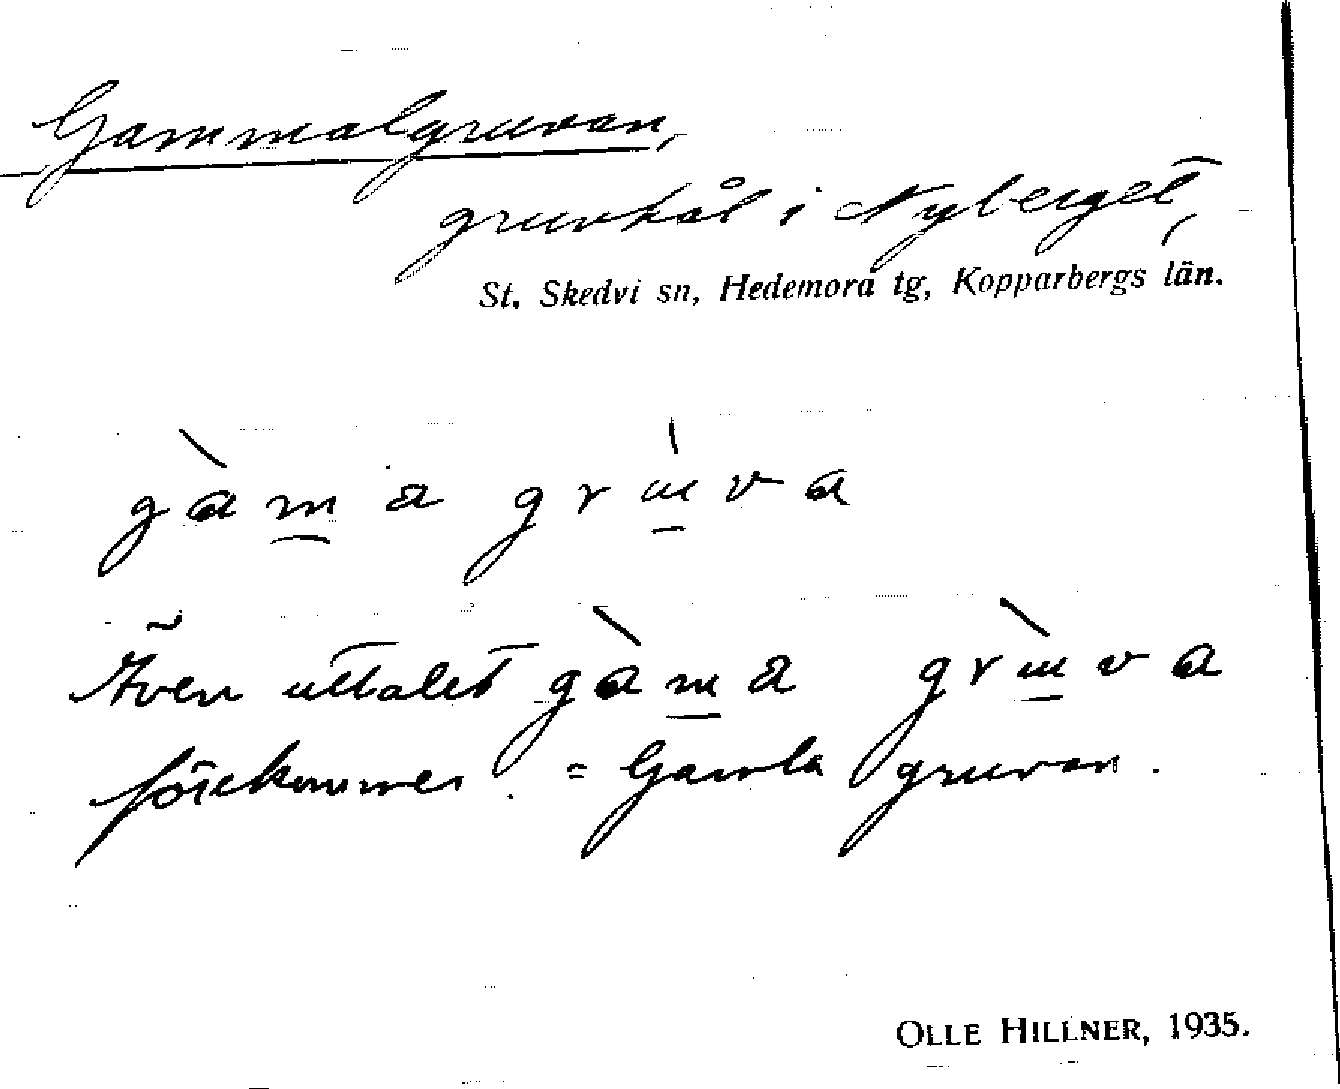 Gammalgruvan,
gruvhål i Nyberget,
St. Skedvi sn, Hedemora tg, Kopparbergs län.
gàm̲a gru̲̍va
Även uttalet gàm̲a grù̲va
förekommer. = Gamla gruvan.
OLLE HILLNER, 1935.